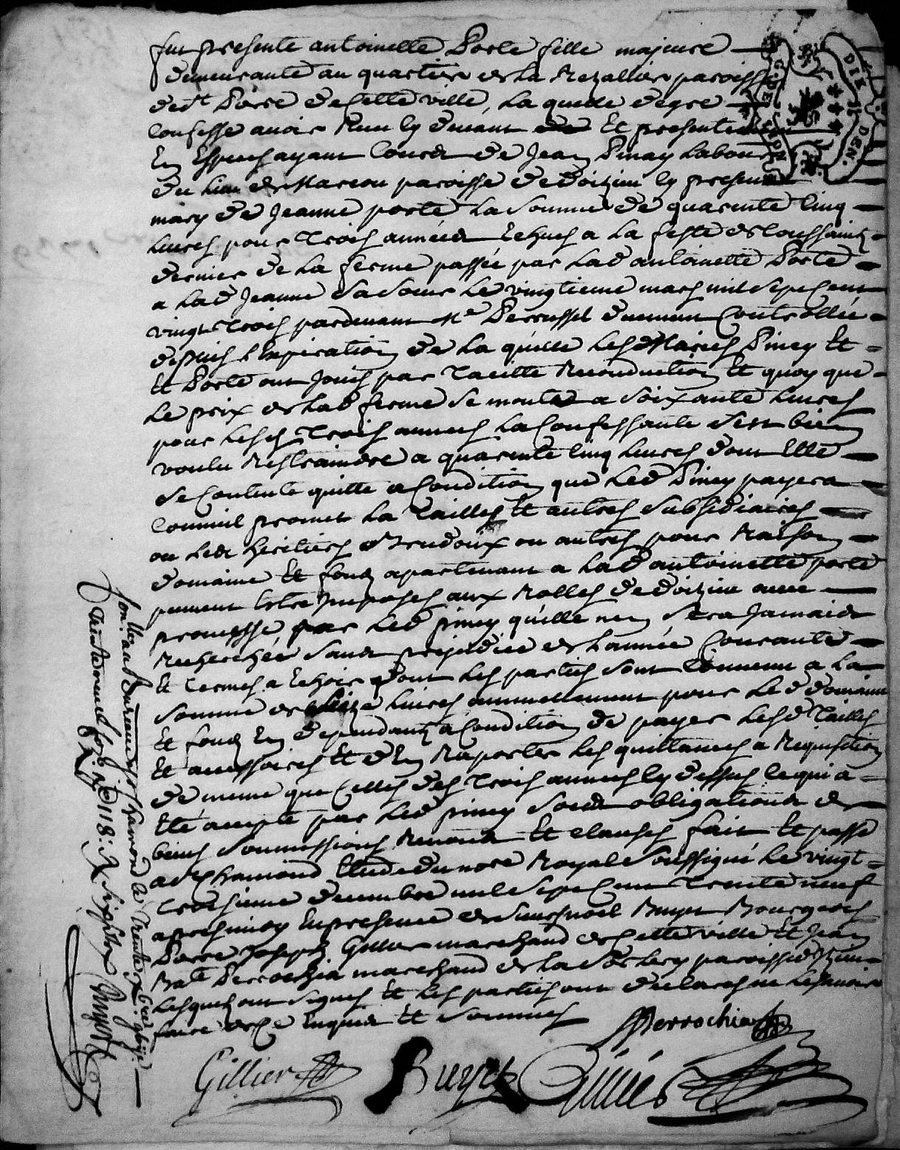 fut presente antoinette Porte fille majeure
demeurante au quartier de la Rezalliere paroisse
de st Pierre de Cette ville, la quelle degre
Confesse avoir Receu Cy devant et presentement
En Especes ayant Cours de Jean Pinay Labour
du lieu de Marcou paroisse de doizieu Cy present
mary de Jeanne porte La somme de quarente Cinq
Livres pour trois années Echues a la feste de toussaint
dernier de la ferme passée par lad antoinette Porte
a lad Jeanne sa soeur Le vingtieme mars mil sept Cent
vingt trois pardevant Me duement Controllée
depuis l'Expiration de la quelle lesd Mariés Piney Et
Et Porte ont Jouis par tacitte Reconduction Et quoy que
Le prix de lad ferme se monte a soixante Livres
pour lesd trois années La Confessante s'est bien
voulu Restraindre a quarente Cinq Livres dont Elle
se Contente quitte a Condition que led Piney payera
Comme il promet La tailles Et autres subsidiaires
ou les heritiers ou autres pour Raison
domaine Et fonds apartenant a lad antoinette porte
peuvent Estre Imposes aux Rolles de doizieu avec
promesse par led piney quelle n'en sera Jamais
Recherchee sans prejudice de l'année Courante
Et termes a Echoir dont les parties sont Convenu a la
somme de Livres annuellement pour led domaine
Et fonds En dependants a Condition de payer lesd tailles
Et accessoires Et d'En Raporter les quittances a Requisition
de meme que Celles des trois années Cy dessus le qui a
Eté accepté par led piney sous obligations de
biens soumissions Renon Et clauses fait Et passé
a st Chamond Etude du nore Royal soussigné Le vingt
troisieme decembre mil sept Cent trente neuf
apres midy En presence de sieurs noel Buyet Bourgeois
Pierre Joseph Gillier marchand de Cette ville Et Jean
Bate Perrochia marchand de la paroisse d'Izieu
Lesquels ont signés Et les parties ont declares ne le savoir
faire de Ce Enquis Et sommés
Perrochia
Gillier Buyet
Con.lle au Bureau de st chamond le trente Xbre 1739